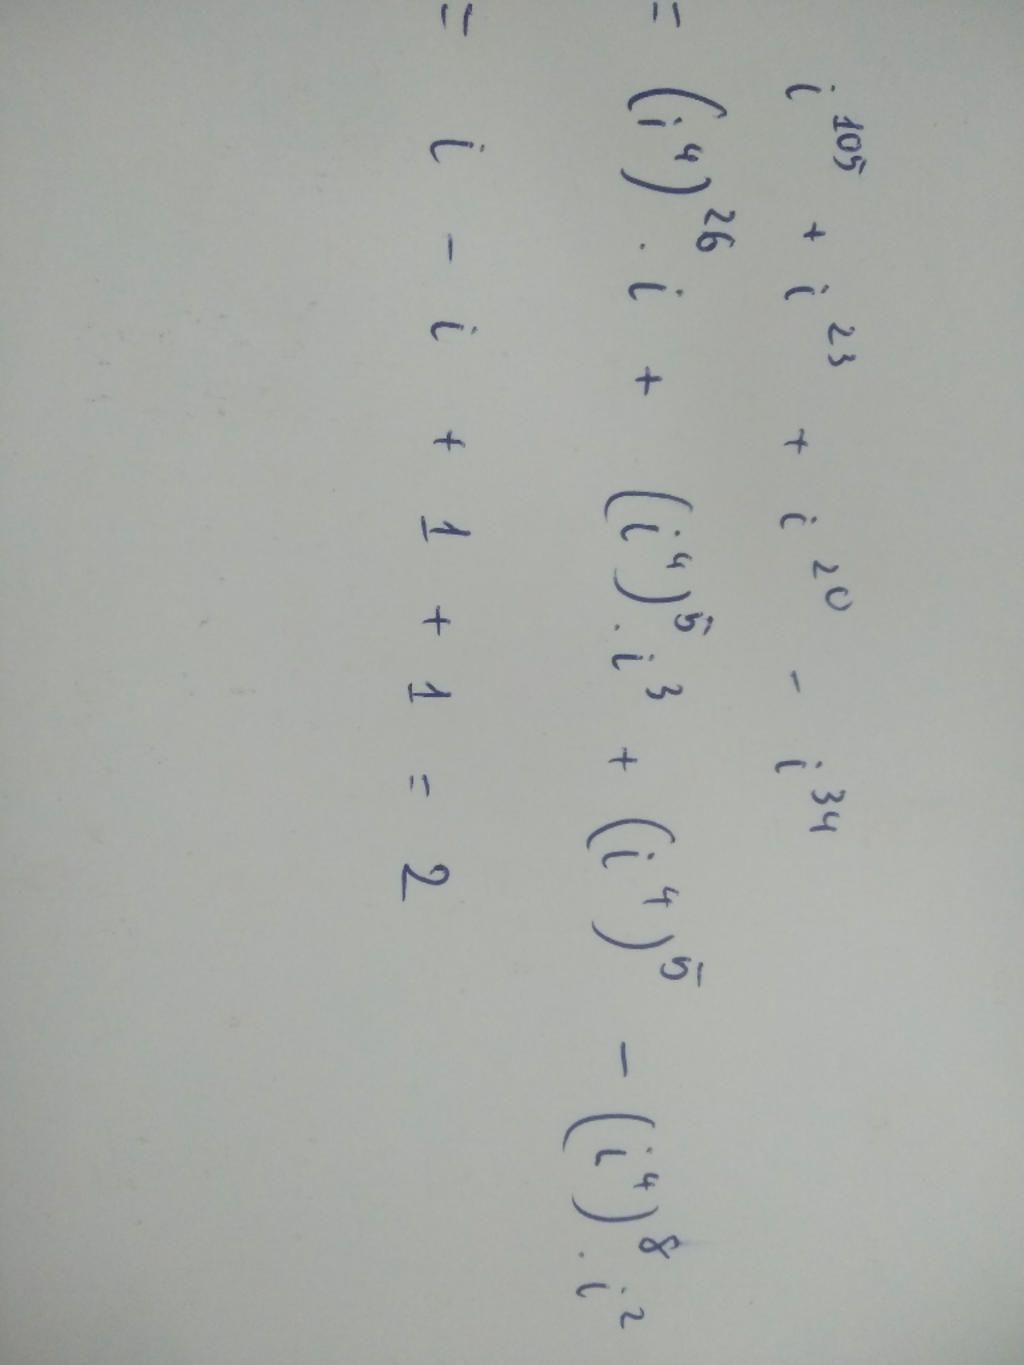 i¹⁰⁵ + i²³ + i²⁰ - i³⁴
= (i⁴)²⁶ · i + (i⁴)⁵ · i³ + (i⁴)⁵ - (i⁴)⁸ · i²
= i - i + 1 + 1 = 2